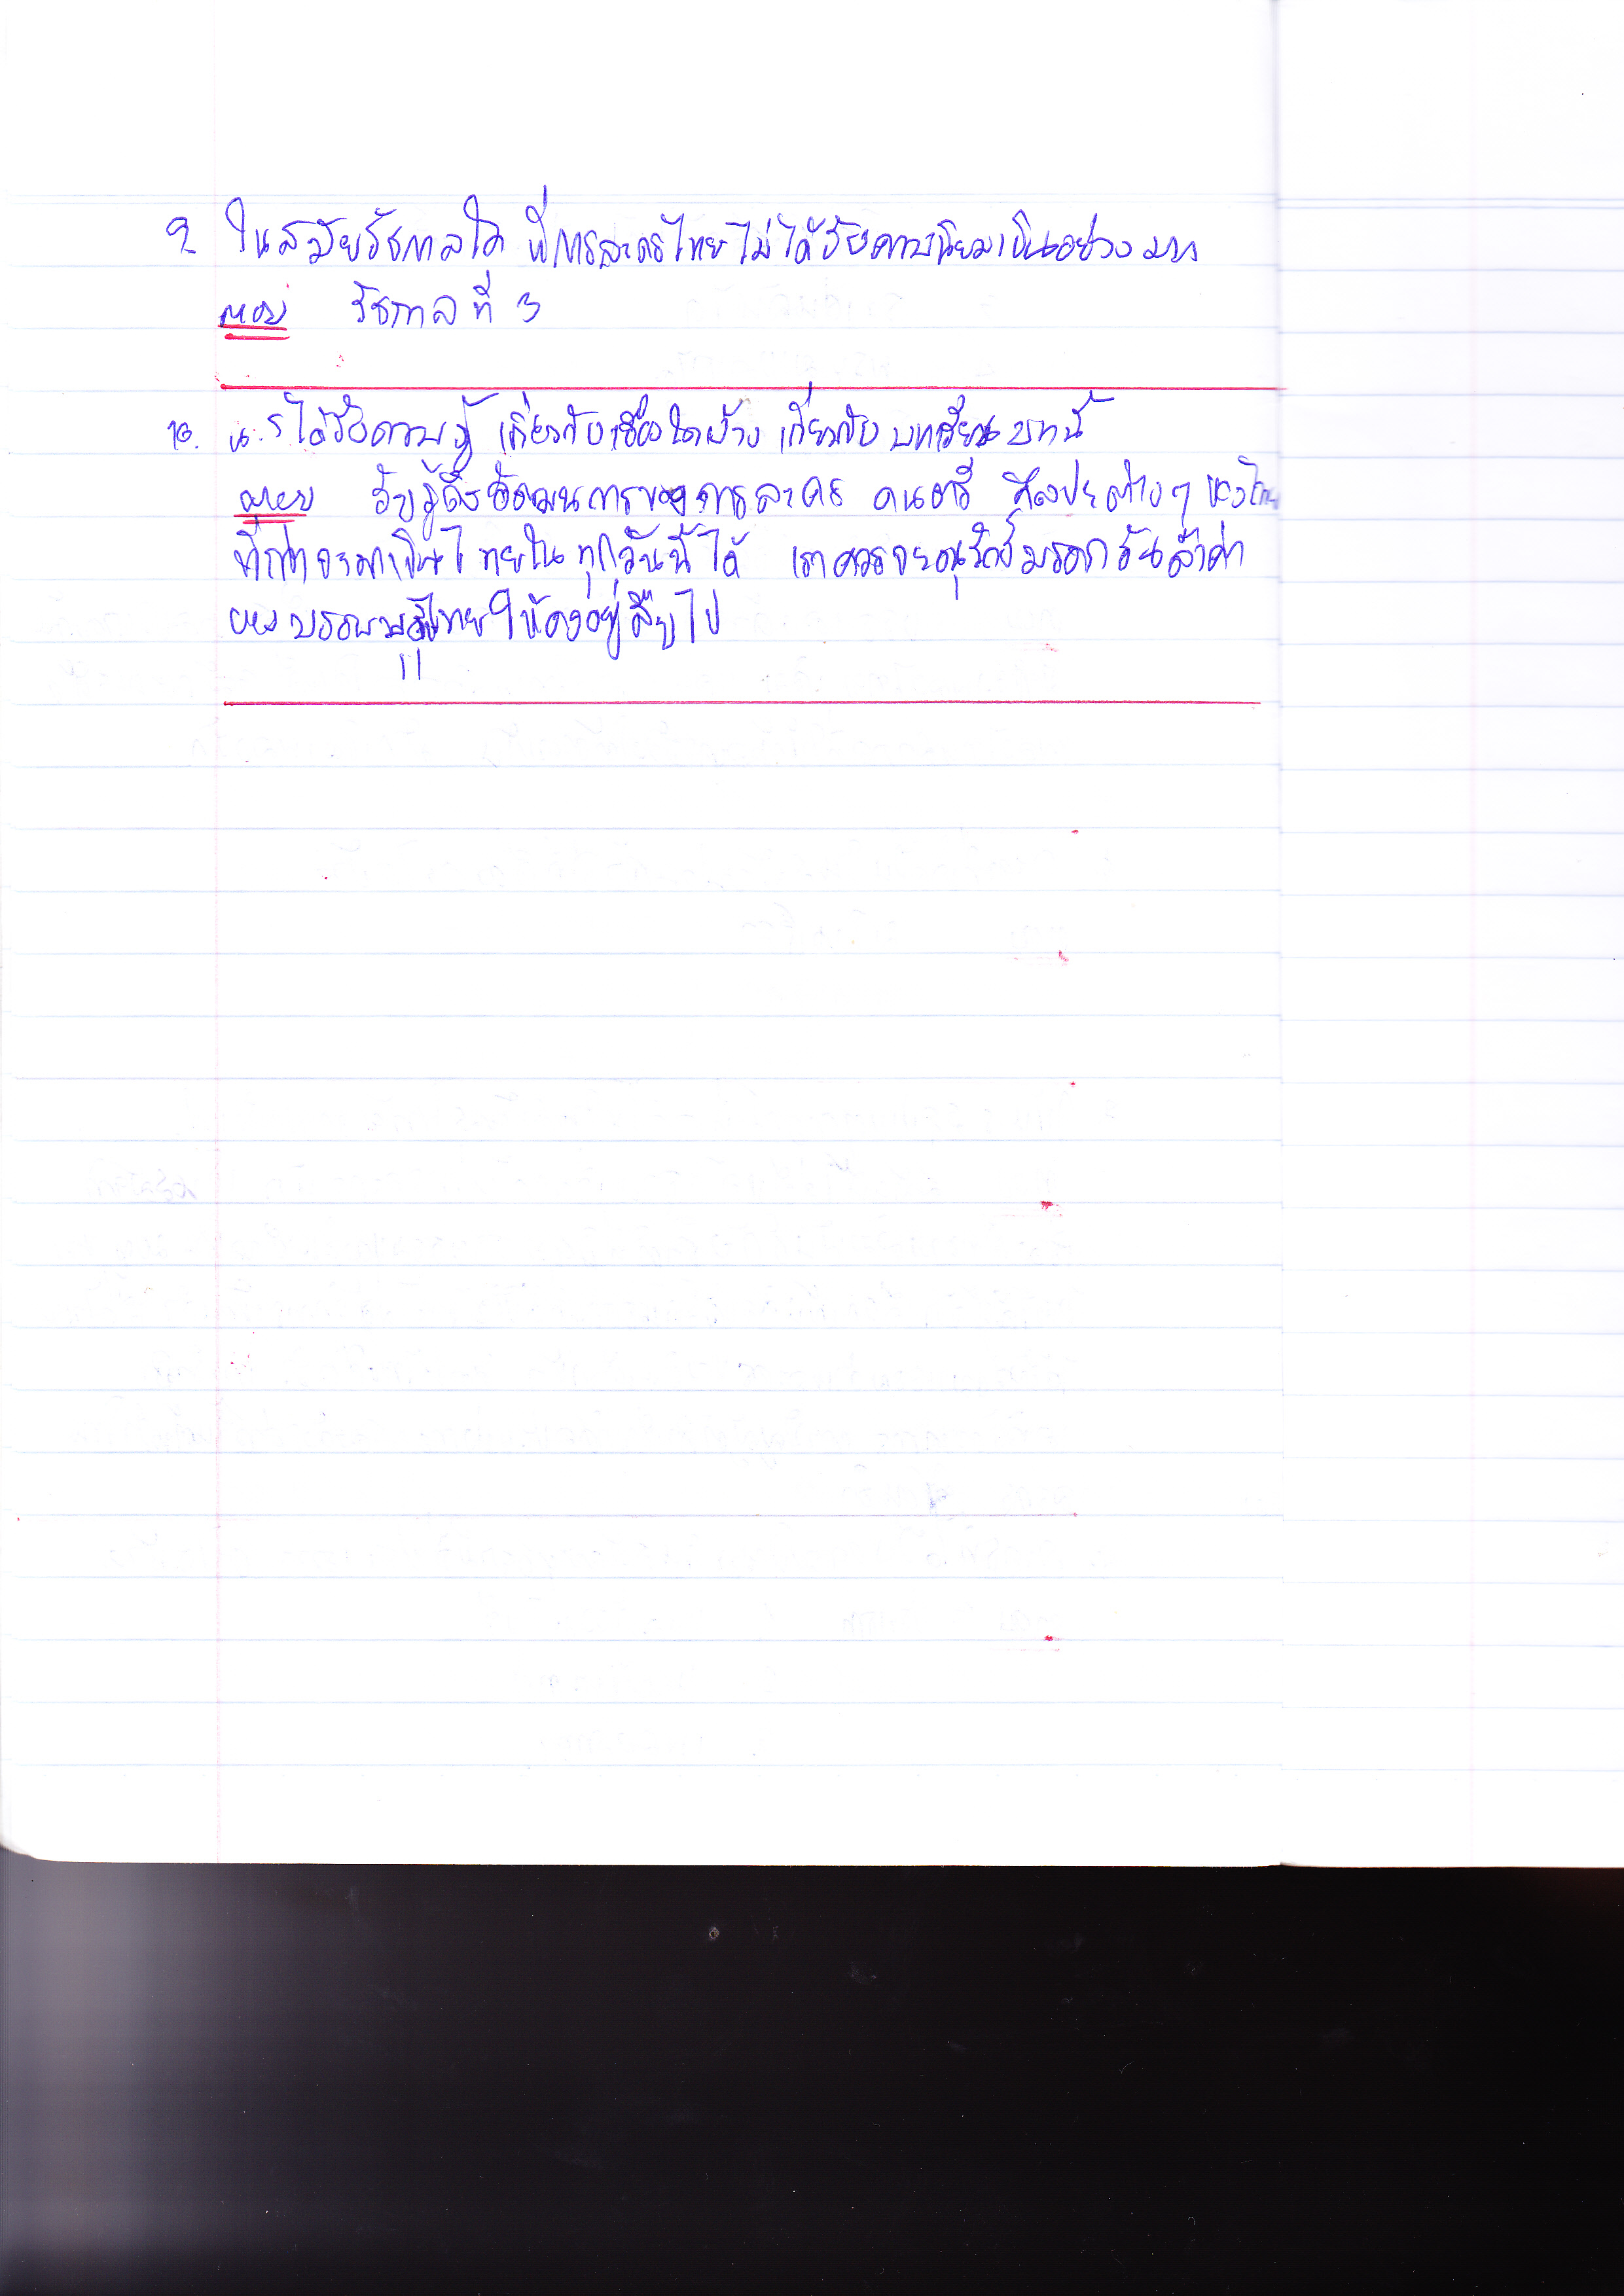 9. ในสมัยรัชกาลใด ที่การละครไทยไม่ได้รับความนิยมเป็นอย่างมาก
ตอบ รัชกาลที่ 3
10. น.ร ได้รับความรู้ เกี่ยวกับเรื่องใดบ้าง เกี่ยวกับ บทเรียนบทนี้
ตอบ รับรู้ถึงวิวัฒนาการของการละคร ดนตรี ศิลปะต่างๆ ของไทย
ที่กว่าจะมาเป็นไทยในทุกวันนี้ได้ เราควรจะอนุรักษ์มรดกอันล้ำค่า
ของบรรพบุรุษไทยให้คงอยู่สืบไป